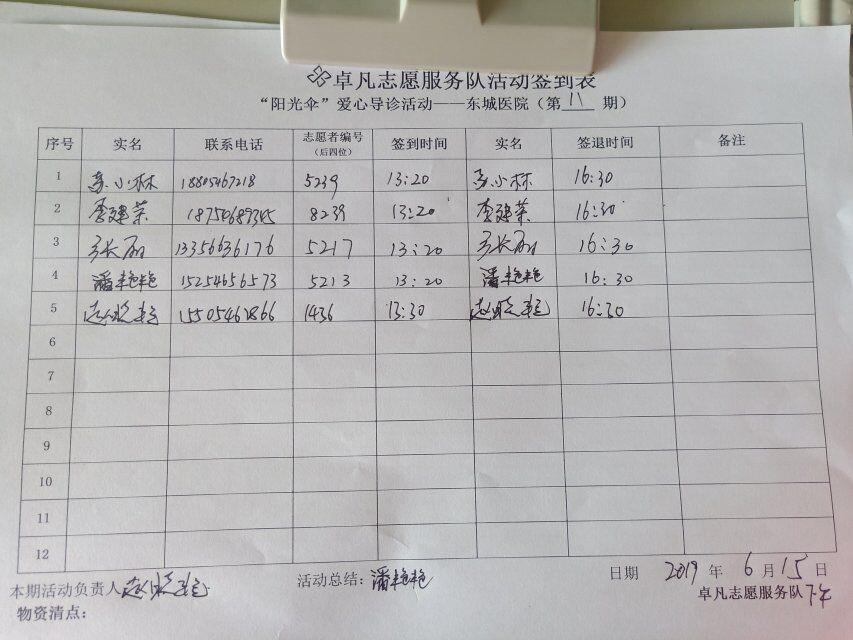 卓凡志愿服务队活动签到表
“阳光伞”爱心导诊活动——东城医院（第 11 期）
序号 实名 联系电话 志愿者编号（后四位） 签到时间 实名 签退时间 备注
1 小林 18805467218 5239 13:20 小林 16:30
2 李建荣 18750689345 8239 13:20 李建荣 16:30
3 张丽 13356636176 5217 13:20 张丽 16:30
4 潘艳艳 15254656573 5213 13:20 潘艳艳 16:30
5 赵晓艳 15505461866 1436 13:30 赵晓艳 16:30
6
7
8
9
10
11
12
本期活动负责人 赵晓艳 活动总结：潘艳艳 日期 2019 年 6 月 15 日
物资清点： 卓凡志愿服务队 下午